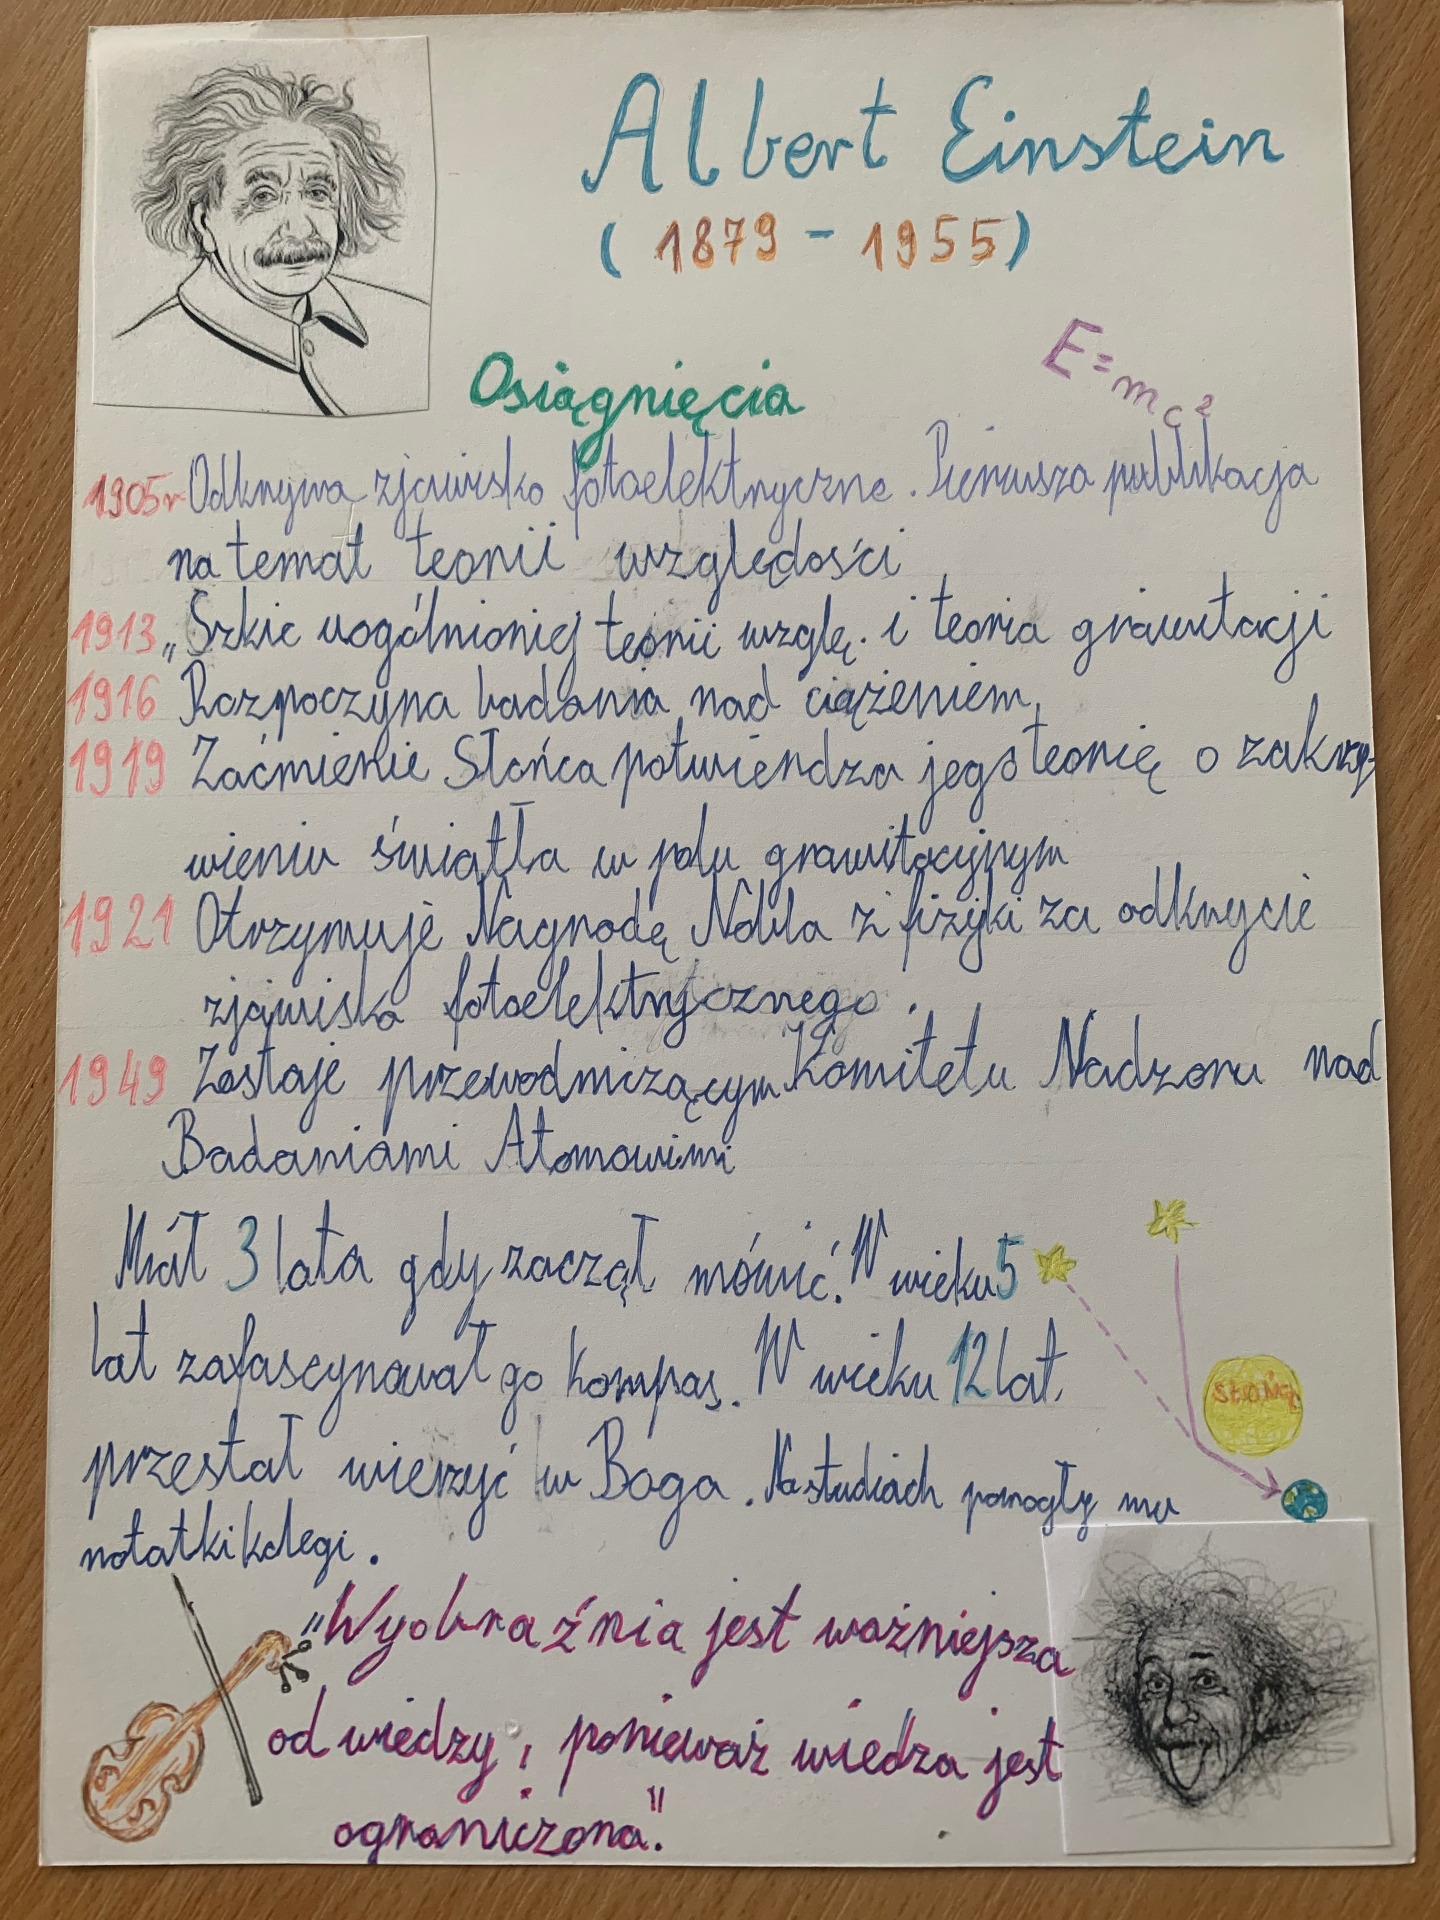 Albert Einstein
(1879 - 1955)
E=mc²
Osiągnięcia
1905r Odkrywa zjawisko fotoelektryczne. Pierwsza publikacja
na temat teorii względości
1913 „Szkic uogólnionej teorii wzglę. i teoria grawitacji
1916 Rozpoczyna badania nad ciążeniem,
1919 Zaćmienie Słońca potwierdza jego teorię o zakrzy-
wieniu światła w polu grawitacyjnym
1921 Otrzymuje Nagrodę Nobla z fizyki za odkrycie
zjawiska fotoelektrycznego.
1949 Zostaje przewodniczącym Komitetu Nadzoru nad
Badaniami Atomowimi
Miał 3 lata gdy zaczął mówić! W wieku 5
lat zafascynował go kompas. W wieku 12 lat
przestał wierzyć w Boga. Na studiach pomogły mu
notatki kolegi.
Słońce
"Wyobraźnia jest ważniejsza
od wiedzy, ponieważ wiedza jest
ograniczona".